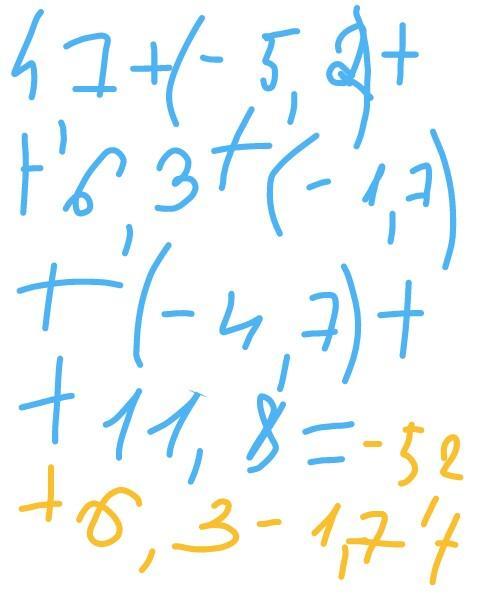 4,7+(-5,2)+
+6,3+(-1,7)
+(-4,7)+
+11,8=-52
+6,3-1,7